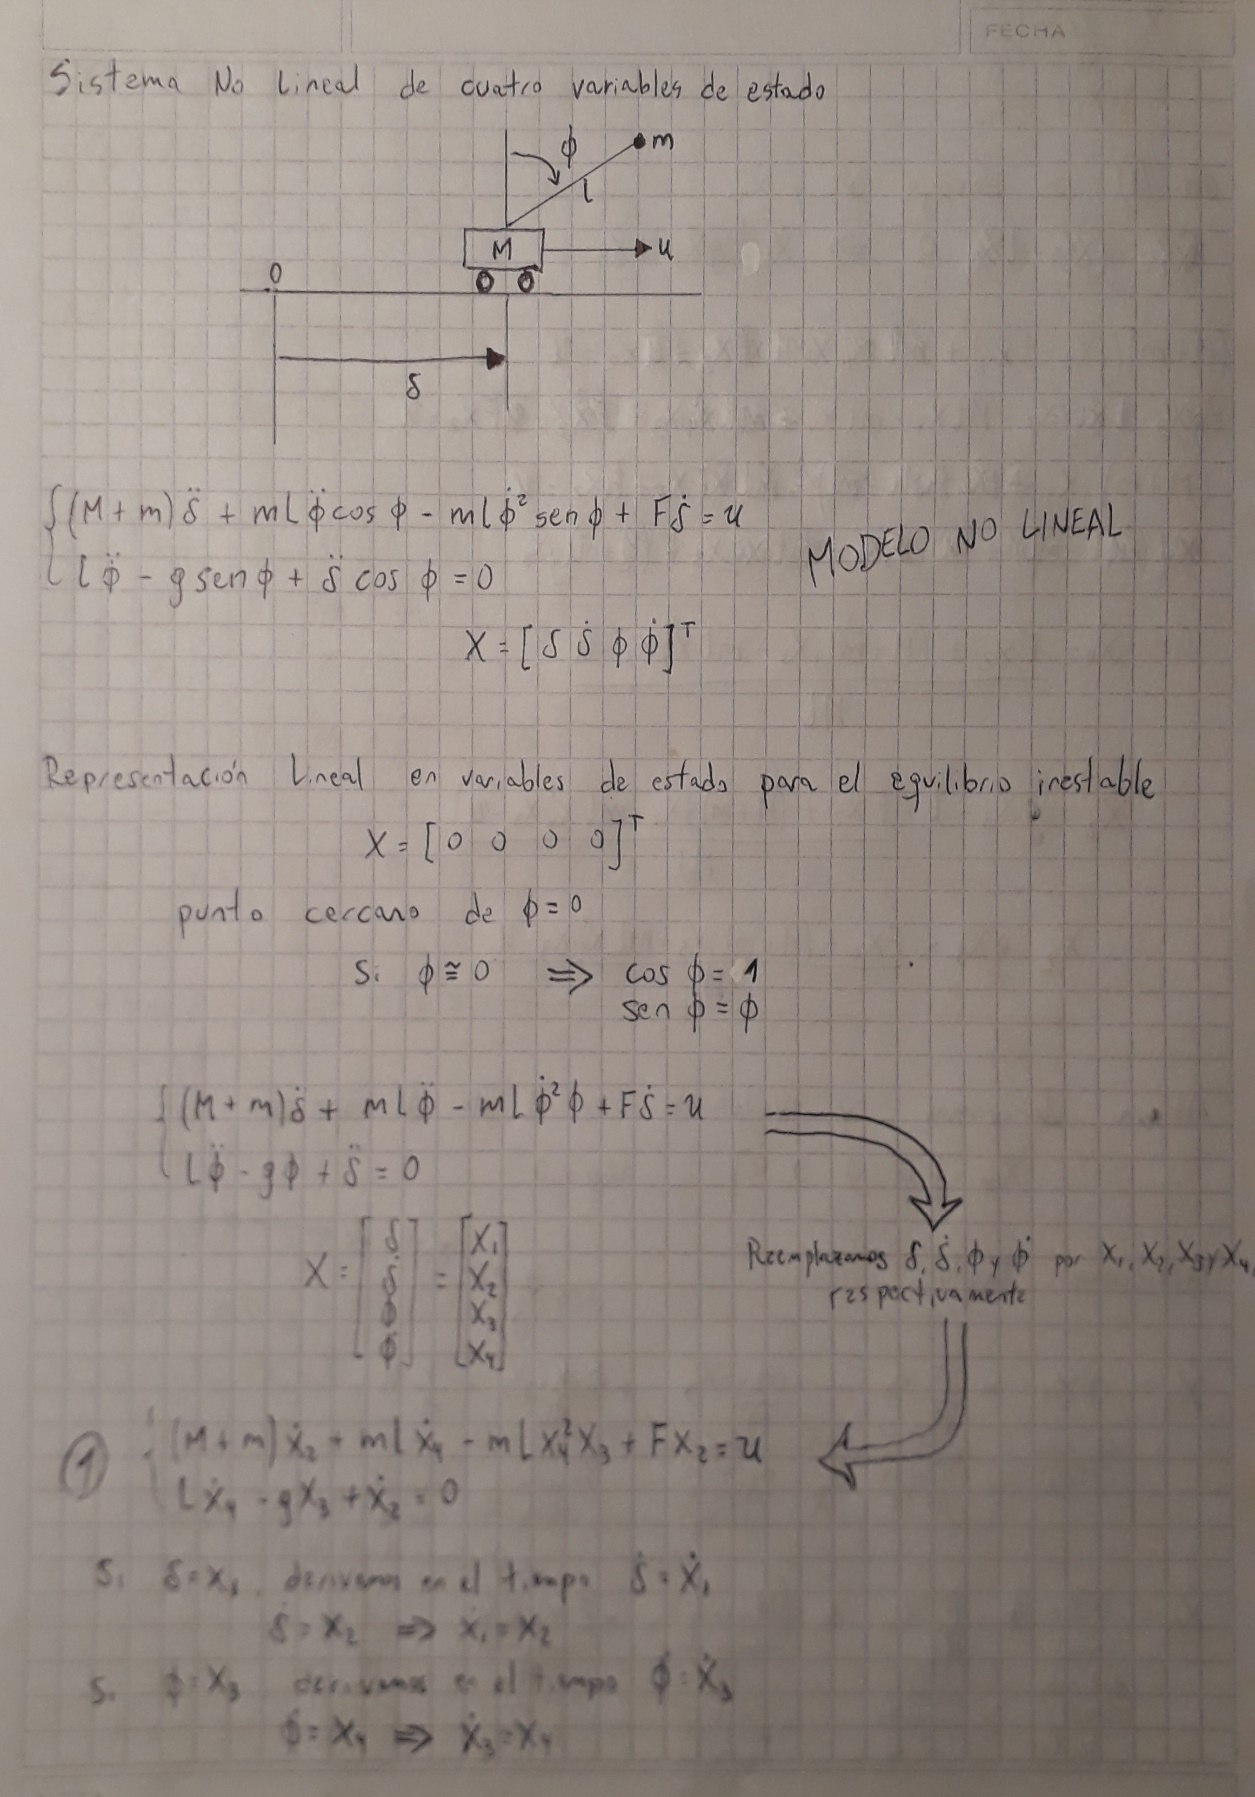 FECHA
Sistema No Lineal de cuatro variables de estado
ϕ m
l
M u
0
δ
{(M+m)δ̈ + mlϕ̈cos ϕ - mlϕ̇² sen ϕ + Fδ̇ = u
lϕ̈ - g sen ϕ + δ̈ cos ϕ = 0
MODELO NO LINEAL
X = [δ δ̇ ϕ ϕ̇]ᵀ
Representación Lineal en variables de estado para el equilibrio inestable
X = [0 0 0 0]ᵀ
punto cercano de ϕ = 0
Si ϕ ≅ 0 ⇒ cos ϕ = 1
sen ϕ = ϕ
{(M+m)δ̈ + mlϕ̈ - mlϕ̇²ϕ + Fδ̇ = u
lϕ̈ - gϕ + δ̈ = 0
X = [δ δ̇ ϕ ϕ̇] = [X₁ X₂ X₃ X₄]
Reemplazamos δ, δ̇, ϕ y ϕ̇ por X₁, X₂, X₃ y X₄,
respectivamente
① {(M+m)Ẋ₂ + mlẊ₄ - mlX₄²X₃ + FX₂ = u
lẊ₄ - gX₃ + Ẋ₂ = 0
Si δ = X₁ derivamos en el tiempo δ̇ = Ẋ₁
δ̇ = X₂ ⇒ Ẋ₁ = X₂
Si ϕ = X₃ derivamos en el tiempo ϕ̇ = Ẋ₃
ϕ̇ = X₄ ⇒ Ẋ₃ = X₄